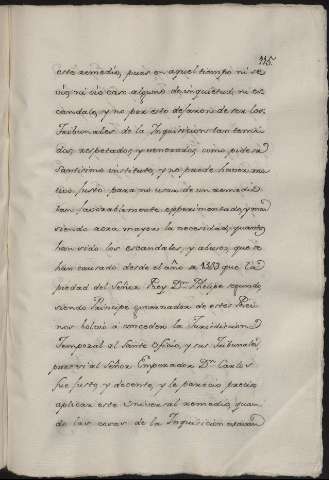 115.
este remedio, pues en aquel tiempo ni se
vió, ni dio caso alguno de inquietud, ni es
candalo, y no por esto dejaron de ser los
Tribunales de la Inquisicion tan temi
dos, respetados, y venerados como pide su
Santissimo instituto, y no puede haver mo
tivo justo para no usar de un remedio
tan favorablemente experimentado, y mas
siendo aora mayor la necesidad, quanto
han sido los escandalos, y abusos, que se
han causado desde el año de 1553 que la
piedad del Señor Rey Dn. Phelipe segundo
siendo Principe governador de estos Rei
nos bolvió a conceder la Jurisdicion
Temporal al Santo Oficio, y sus Tribunales
pues si al Señor Emperador Dn. Carlos
fue justo, y decente, y le pareció preciso
aplicar este universal remedio, quan
do las cosas de la Inquisicion estavan